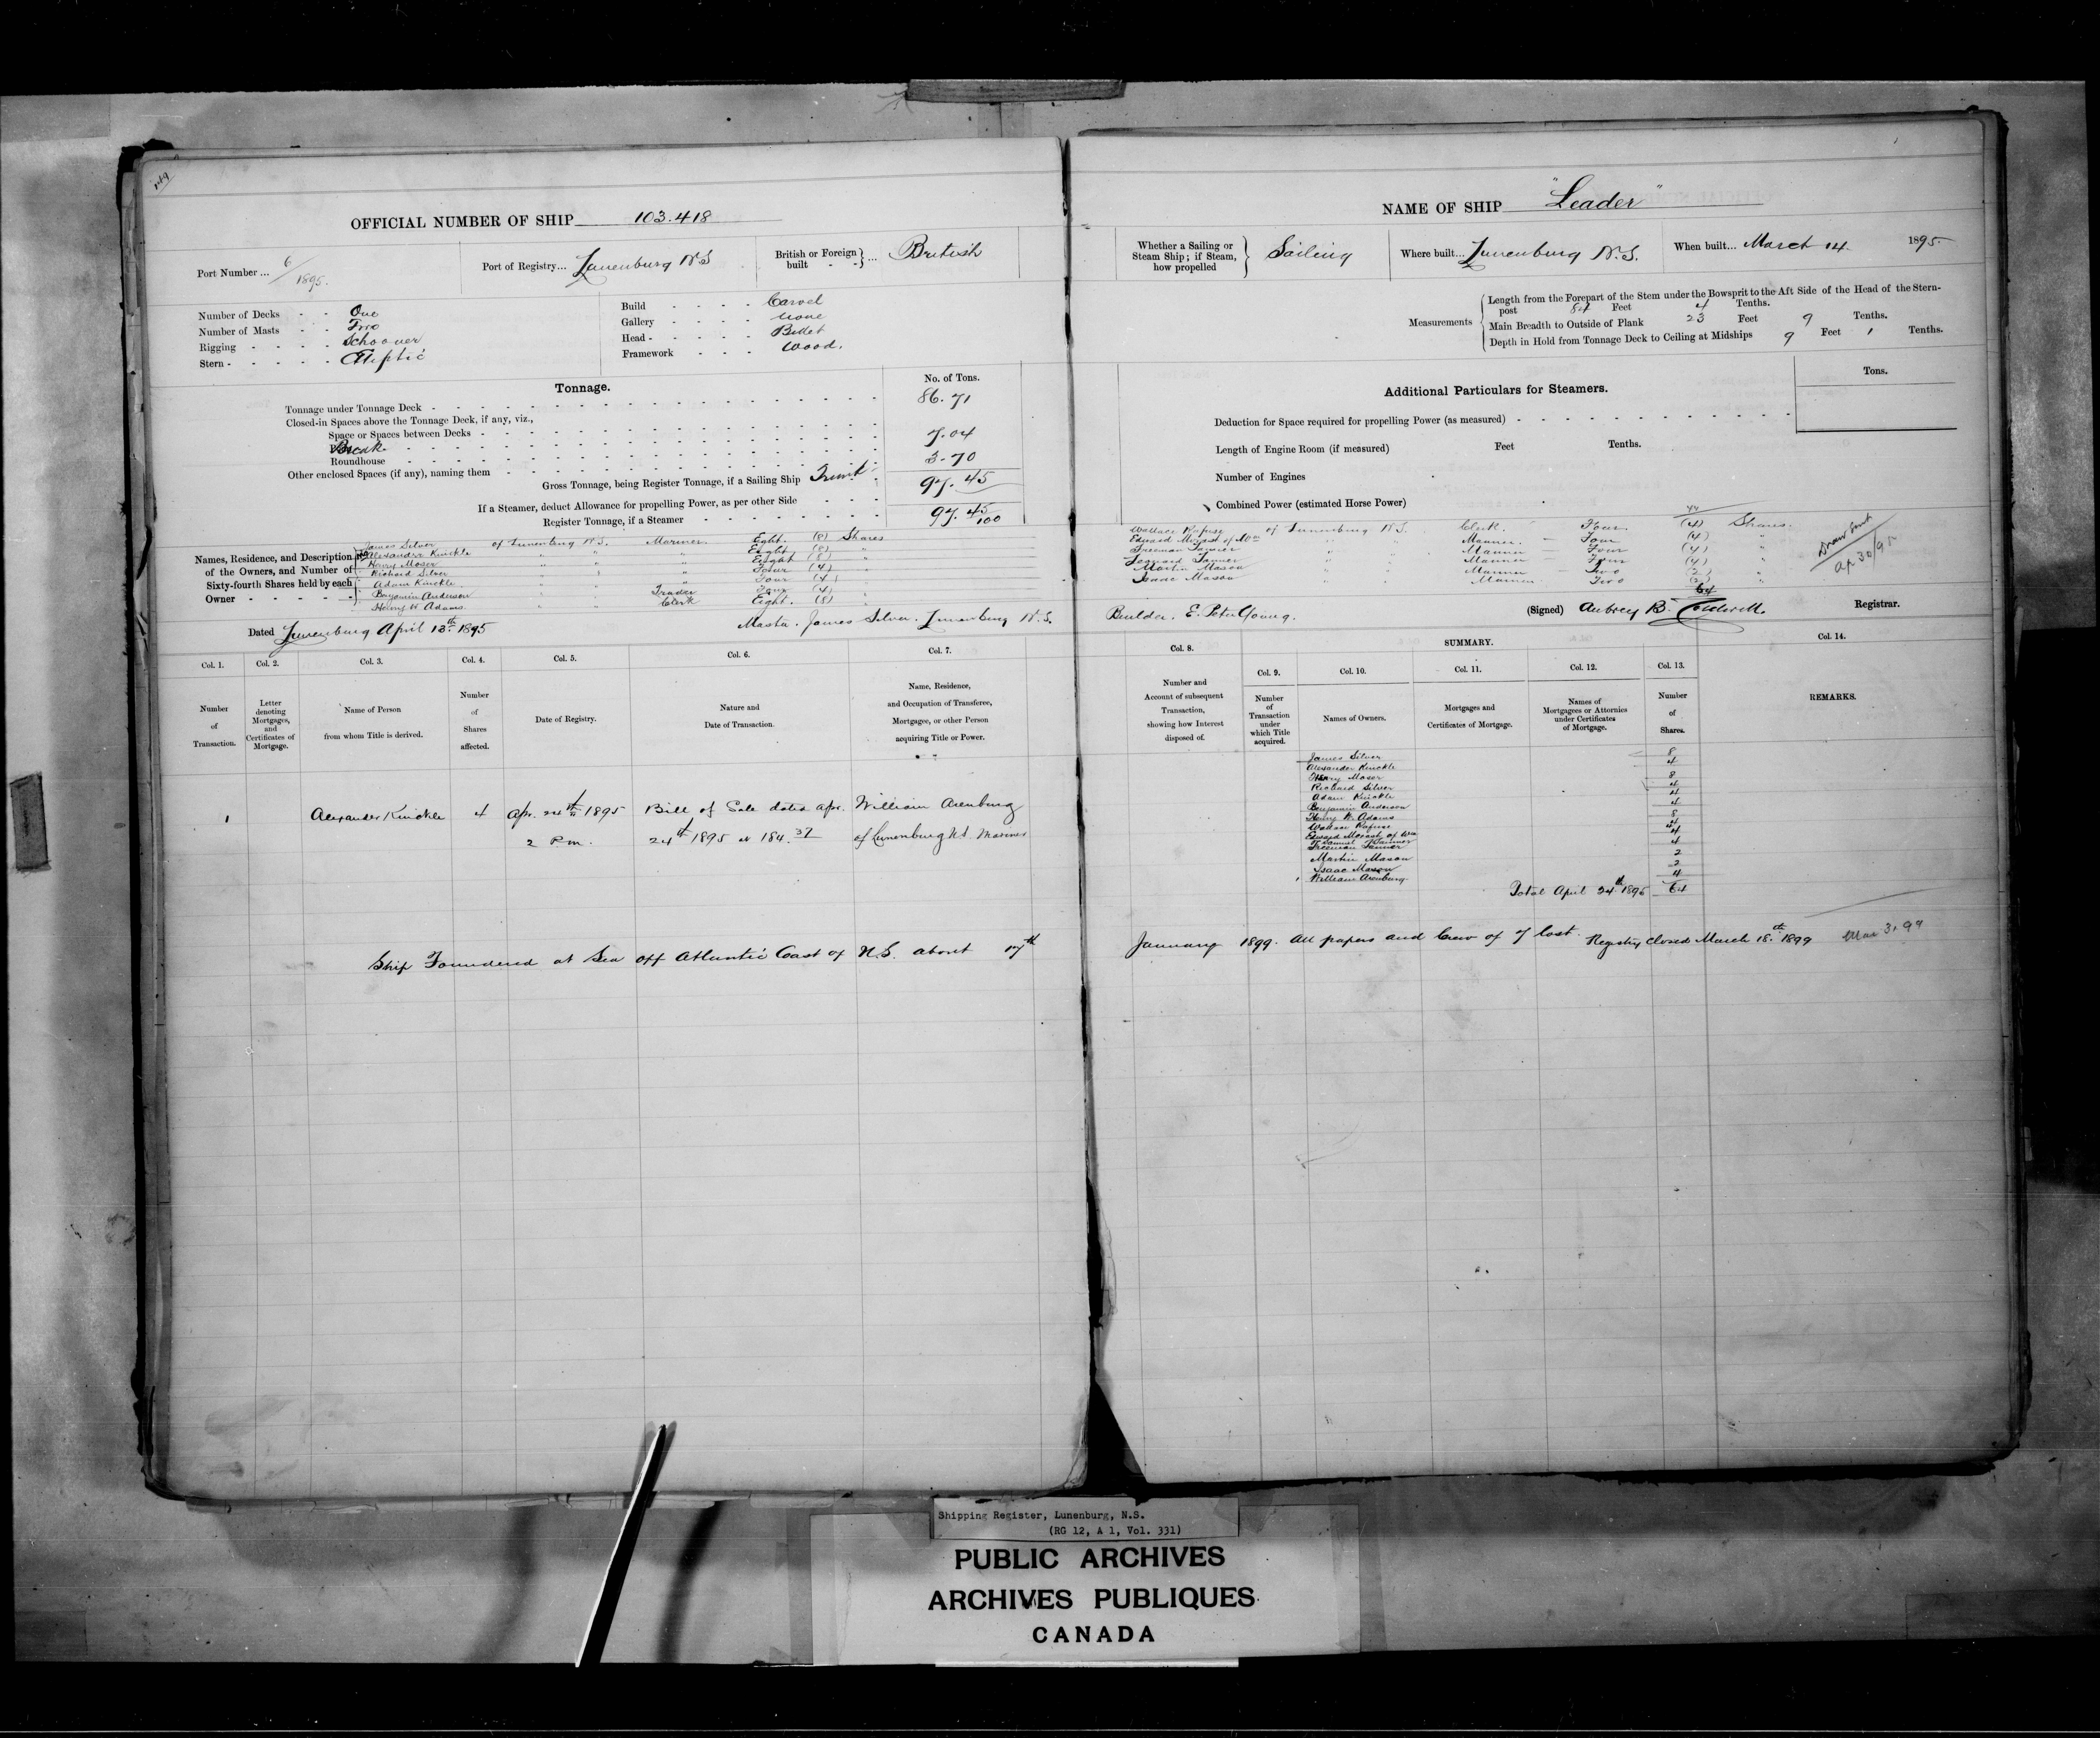 149
OFFICIAL NUMBER OF SHIP 103.418
Port Number ... 6/1895.
Port of Registry... Lunenburg N.S
British or Foreign built - - } ... British
Number of Decks - - One
Number of Masts - - Two
Rigging - - - - Schooner
Stern - - - - - Eliptic
Build - - - - Carvel
Gallery - - - - None
Head - - - - - Billet
Framework - - - Wood.
Tonnage.
No. of Tons.
Tonnage under Tonnage Deck - 86.71
Closed-in Spaces above the Tonnage Deck, if any, viz.,
Space or Spaces between Decks -
Break 7.04
Roundhouse 3.70
Other enclosed Spaces (if any), naming them
Gross Tonnage, being Register Tonnage, if a Sailing Ship 97.45
If a Steamer, deduct Allowance for propelling Power, as per other Side
Register Tonnage, if a Steamer 97.45/100
Names, Residence, and Description of the Owners, and Number of Sixty-fourth Shares held by each Owner
James Silver of Lunenburg N.S. Mariner Eight. (8) Shares
Alexander Knickle " " " Eight (8) "
Henry Moser " " " Eight (8) "
Richard Silver " " " Four (4) "
Adam Knickle " " " Four (4) "
Benjamin Anderson " " Trader Four (4) "
Henry W. Adams " " Clerk Eight. (8) "
Dated Lunenburg April 13th 1895
Master. James Silver. Lunenburg N.S.
Col. 1.
Col. 2.
Col. 3.
Col. 4.
Col. 5.
Col. 6.
Col. 7.
Number of Transaction.
Letter denoting Mortgages, and Certificates of Mortgage.
Name of Person from whom Title is derived.
Number of Shares affected.
Date of Registry.
Nature and Date of Transaction.
Name, Residence, and Occupation of Transferee, Mortgagee, or other Person acquiring Title or Power.
1 Alexander Knickle 4 Apr. 24th 1895 Bill of Sale dated Apr. William Arenburg
2 P.m. 24th 1895 of Lunenburg N.S Mariner
Ship Foundered at Sea off Atlantic Coast of N.S. about 17th
NAME OF SHIP "Leader"
Whether a Sailing or Steam Ship; if Steam, how propelled } Sailing
Where built... Lunenburg N.S.
When built... March 14. 1895.
Measurements
Length from the Forepart of the Stem under the Bowsprit to the Aft Side of the Head of the Stern-
post 84 Feet 4 Tenths.
Main Breadth to Outside of Plank 23 Feet 9 Tenths.
Depth in Hold from Tonnage Deck to Ceiling at Midships 9 Feet 1 Tenths.
Additional Particulars for Steamers.
Tons.
Deduction for Space required for propelling Power (as measured)
Length of Engine Room (if measured) Feet Tenths.
Number of Engines
Combined Power (estimated Horse Power)
44
Wallace Rafuse of Lunenburg N.S. Clerk. Four (4) Shares.
Edward Morash of Wm " " Mariner. Four (4) "
Freeman Tanner " " Mariner Four (4) "
Tanner " " Mariner Four (4) "
Martin Mason " " Mariner Two (2) "
Isaac Mason " " Mariner Two (2) "
64
Ap 30/95
Builder. E. Peter Young.
(Signed) Aubrey B. Caldwell. Registrar.
Col. 8.
SUMMARY.
Col. 14.
Col. 9.
Col. 10.
Col. 11.
Col. 12.
Col. 13.
Number and Account of subsequent Transaction, showing how Interest disposed of.
Number of Transaction under which Title acquired.
Names of Owners.
Mortgages and Certificates of Mortgage.
Names of Mortgagees or Attornies under Certificates of Mortgage.
Number of Shares.
REMARKS.
James Silver 8
Alexander Knickle 4
Henry Moser 8
Richard Silver 4
Adam Knickle 4
Benjamin Anderson 4
Henry W. Adams 8
Wallace Rafuse 4
Edward Morash of Wm 4
Freeman Tanner 4
Martin Mason 2
Isaac Mason 2
1 William Arenburg 4
Total April 24th 1895 64
January 1899. All papers and Crew of 7 lost. Registry closed March 18th 1899
Shipping Register, Lunenburg, N.S.
(RG 12, A 1, Vol. 331)
PUBLIC ARCHIVES
ARCHIVES PUBLIQUES
CANADA